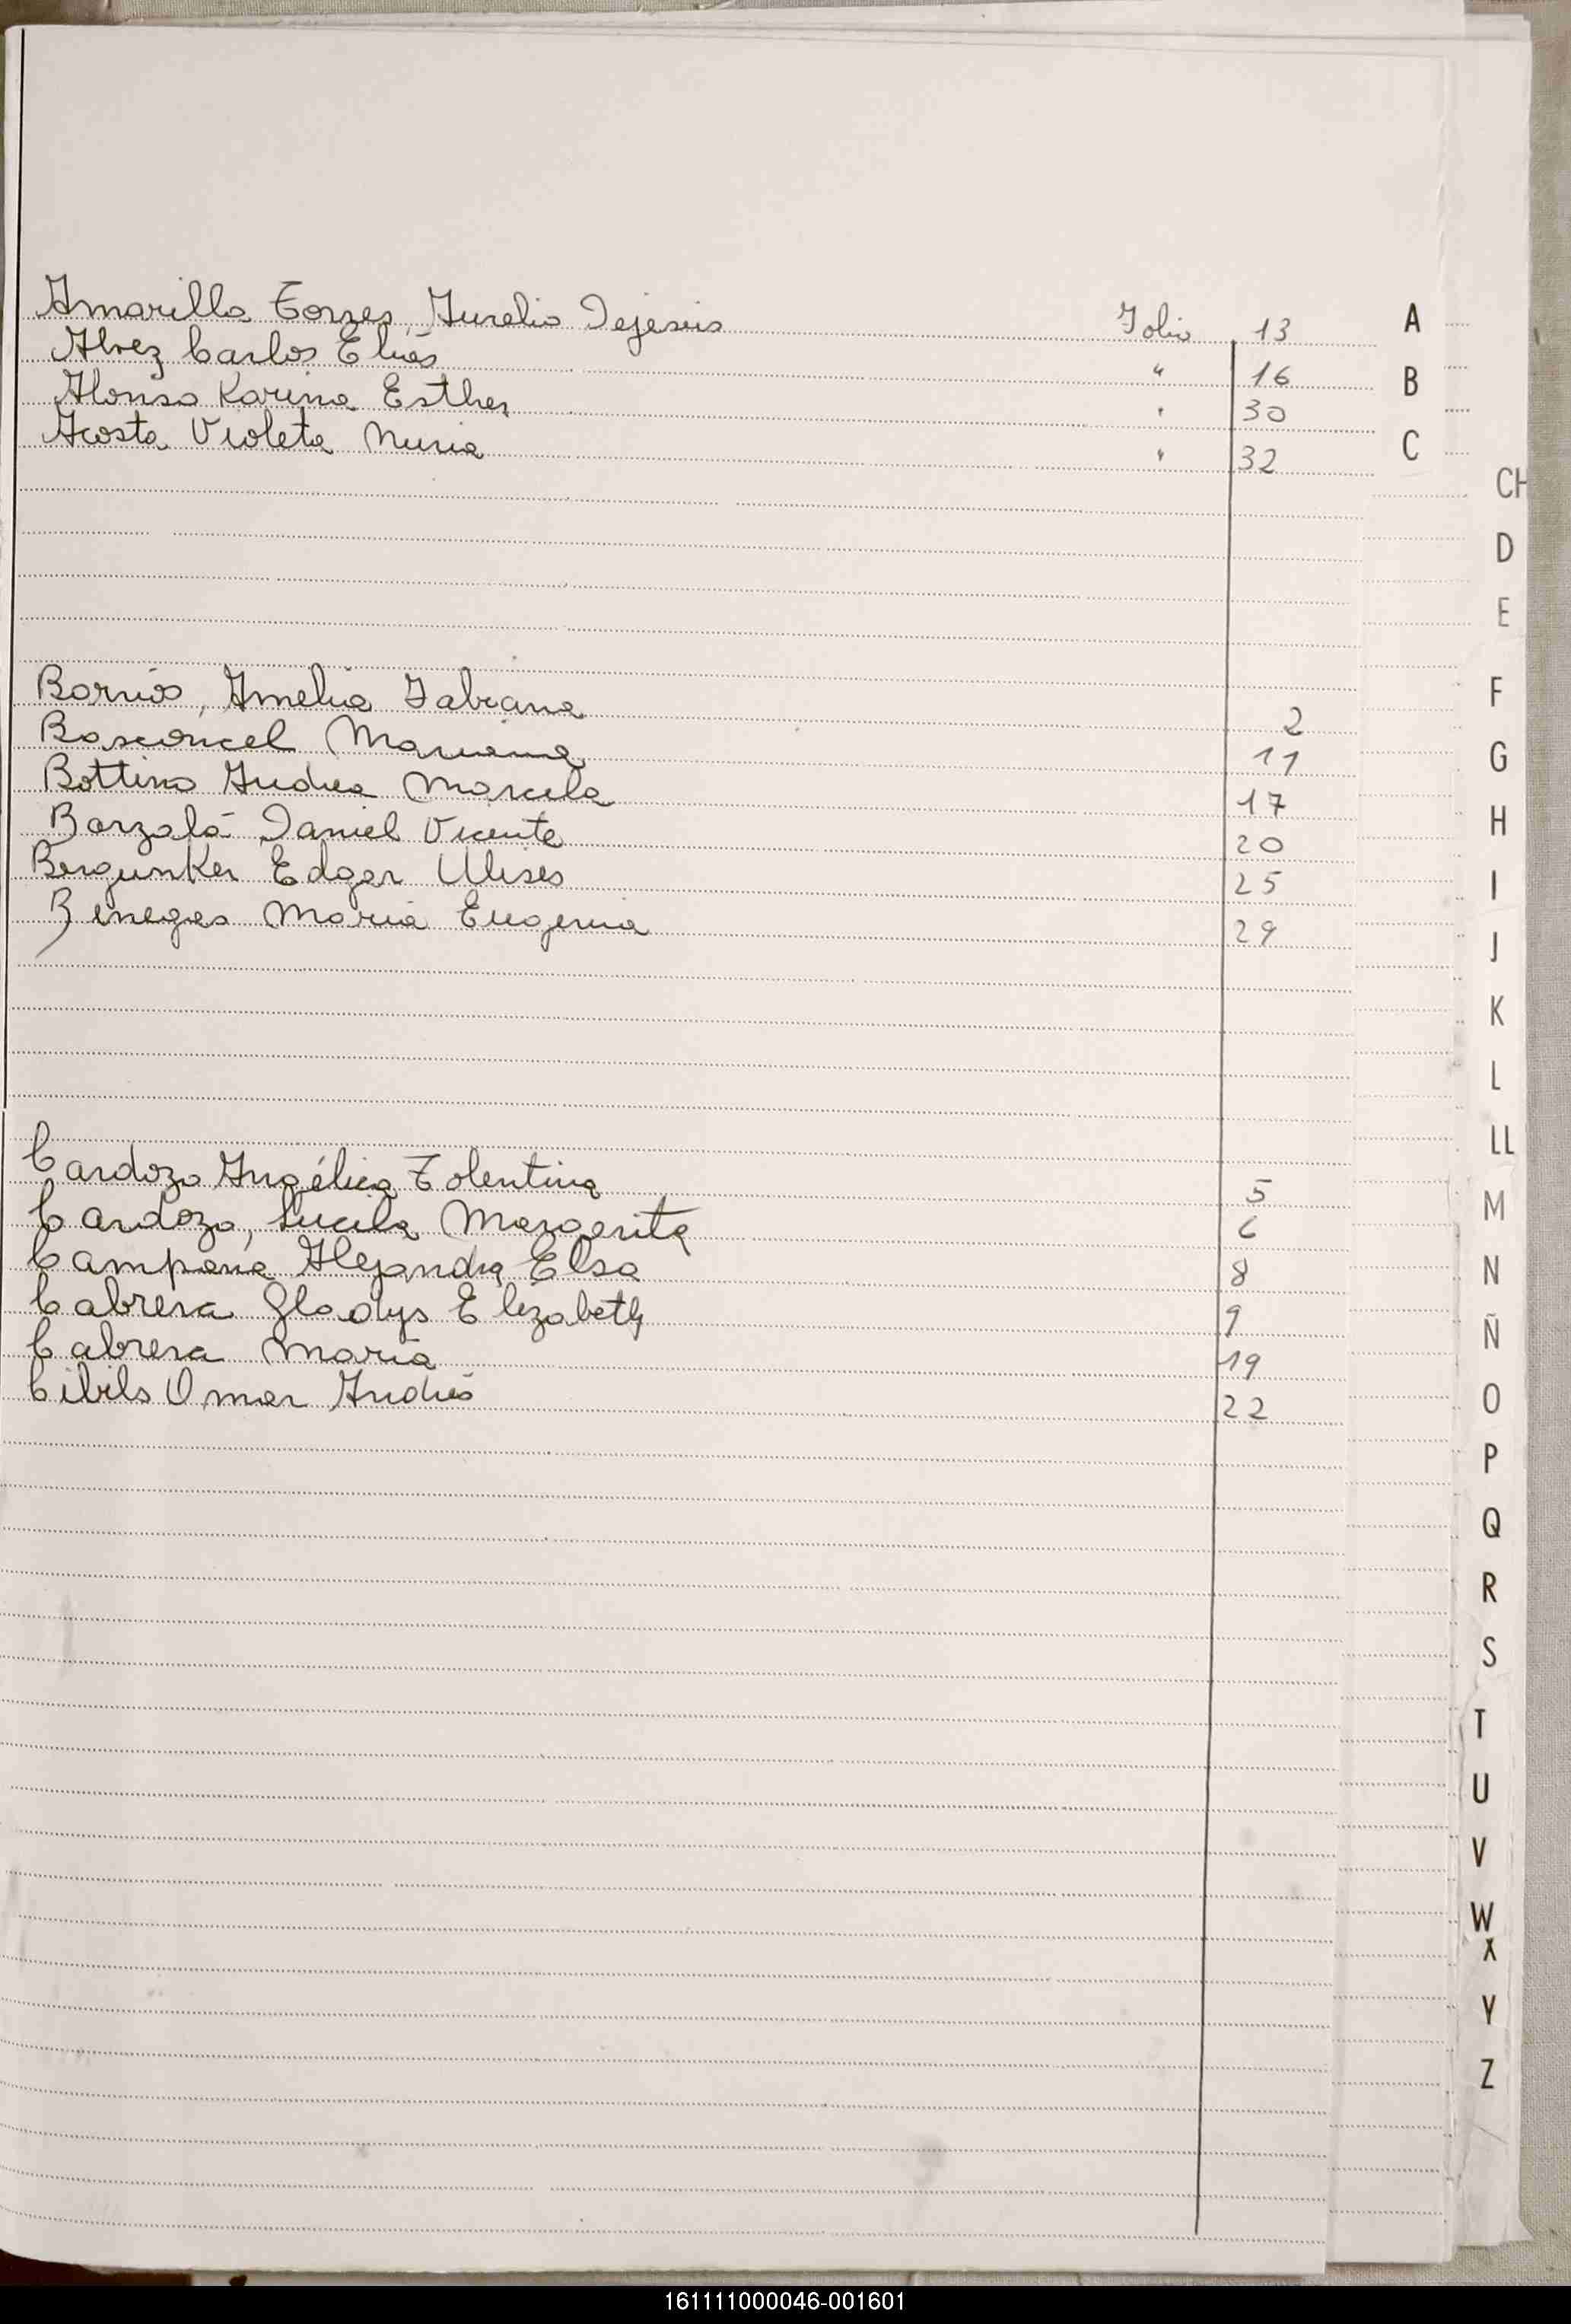 Amarilla Torres, Aurelio Dejesús Folio 13
Alvez Carlos Elías " 16
Alonso Karina Esther " 30
Acosta Violeta Nuria " 32
Barrios, Amelia Fabiana 2
Basconcel Mariana 11
Bottino Andrea Marcela 17
Barzalá Daniel Vicente 20
Bergunker Edgar Ulises 25
Benegas María Eugenia 29
Cardozo Angélica Tolentina 5
Cardozo, Lucila Margarita 6
Campana Alejandra Elsa 8
Cabrera Gladys Elizabeth 9
Cabrera María 19
Cibils Omar Andrés 22
A
B
C
CH
D
E
F
G
H
I
J
K
L
LL
M
N
Ñ
O
P
Q
R
S
T
U
V
W
X
Y
Z
161111000046-001601